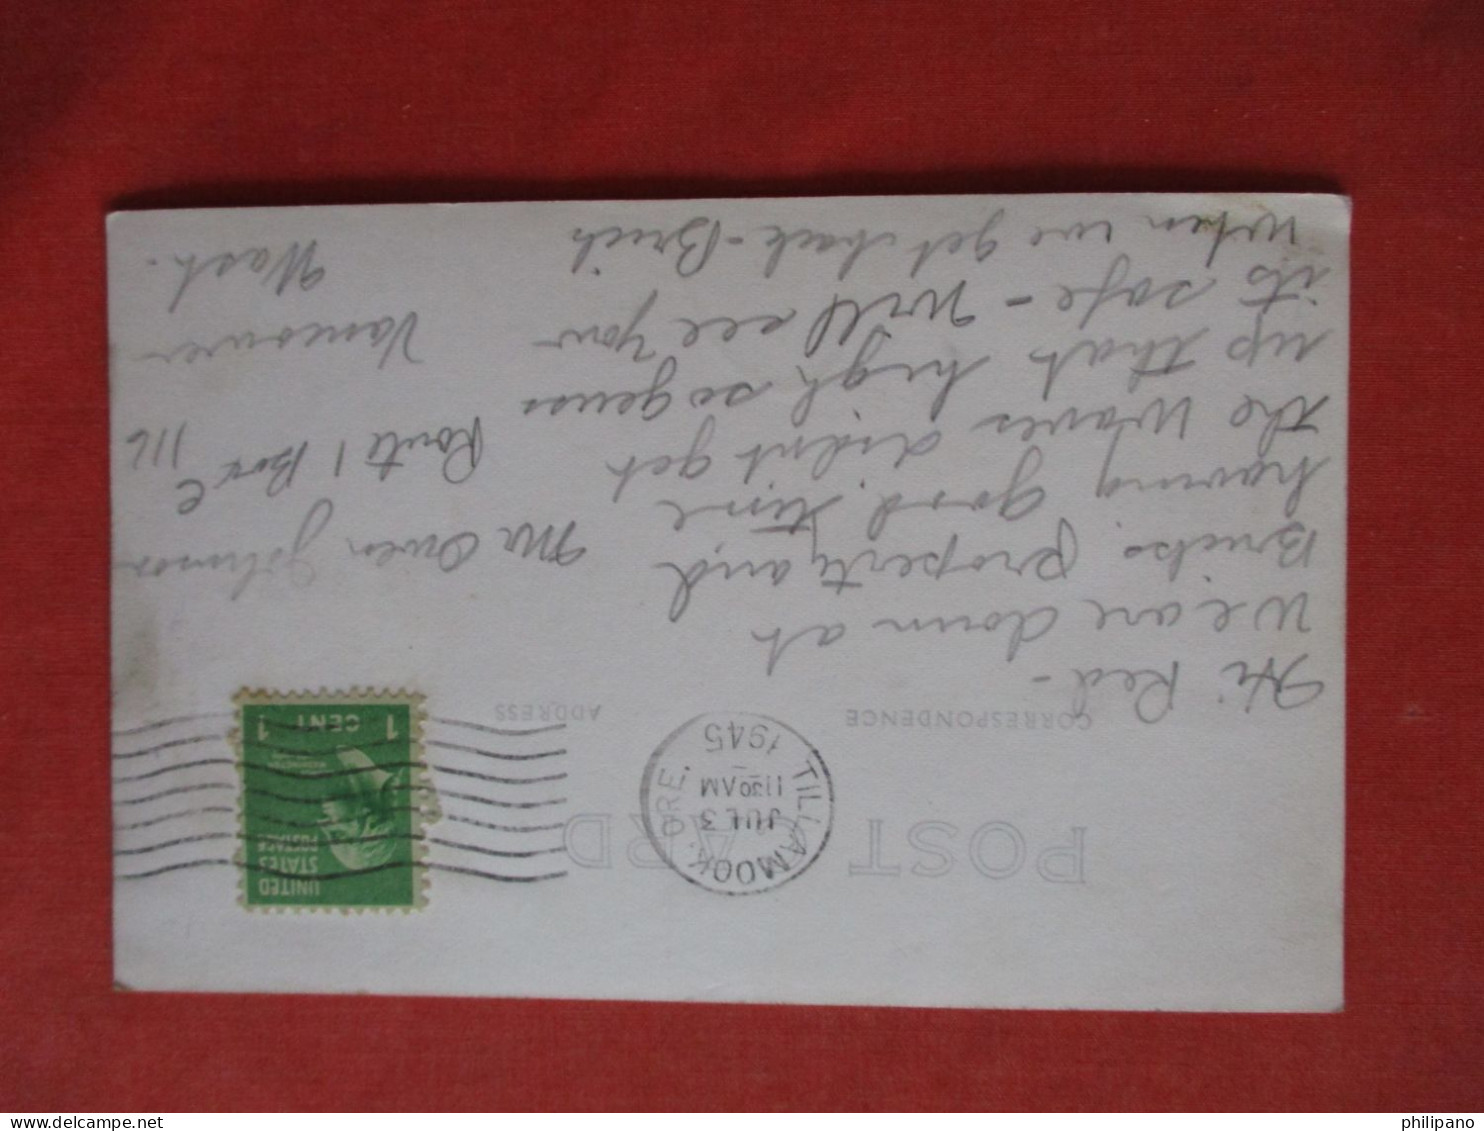 POST CARD
TILLAMOOK, ORE.
JUL 3
11 30 AM
1945
UNITED
STATES
POSTAGE
1 CENT 1
CORRESPONDENCE
ADDRESS
Hi Red -
We are down at
Bricks property and
having good time
the waves didnt get
up that high so guess
its safe - Will see you
when we get back - Brick
Mr Owen Johnson
Route 1 Box
116
Vancouver
Wash.
delcampe.net
philipano